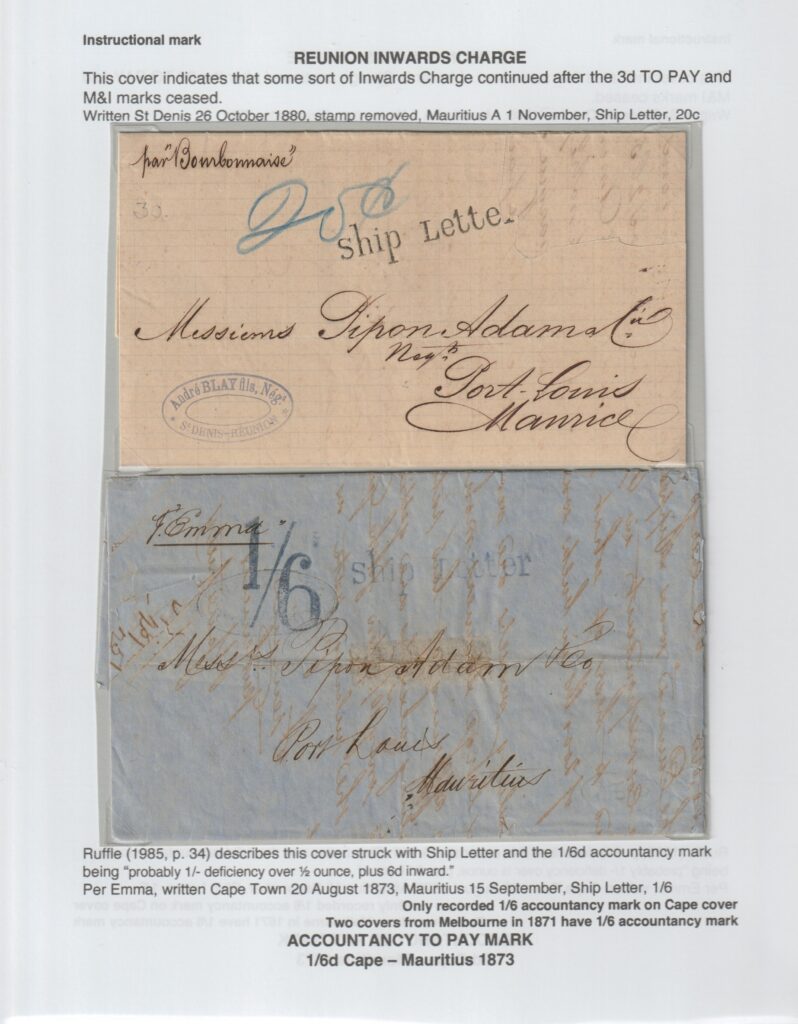 Instructional mark
REUNION INWARDS CHARGE
This cover indicates that some sort of Inwards Charge continued after the 3d TO PAY and
M&I marks ceased.
Written St Denis 26 October 1880, stamp removed, Mauritius A 1 November, Ship Letter, 20c
par "Bourbonnaise"
30.
Ship Letter
Messieurs Pipon Adam & Cie
Negts
Port-Louis
Maurice
André BLAY fils, Négt
* St DENIS-RÉUNION *
p. Emma"
1/6
Ship Letter
Messrs Pipon Adam & Co
Port Louis
Mauritius
Ruffle (1985, p. 34) describes this cover struck with Ship Letter and the 1/6d accountancy mark
being "probably 1/- deficiency over ½ ounce, plus 6d inward."
Per Emma, written Cape Town 20 August 1873, Mauritius 15 September, Ship Letter, 1/6
Only recorded 1/6 accountancy mark on Cape cover
Two covers from Melbourne in 1871 have 1/6 accountancy mark
ACCOUNTANCY TO PAY MARK
1/6d Cape – Mauritius 1873